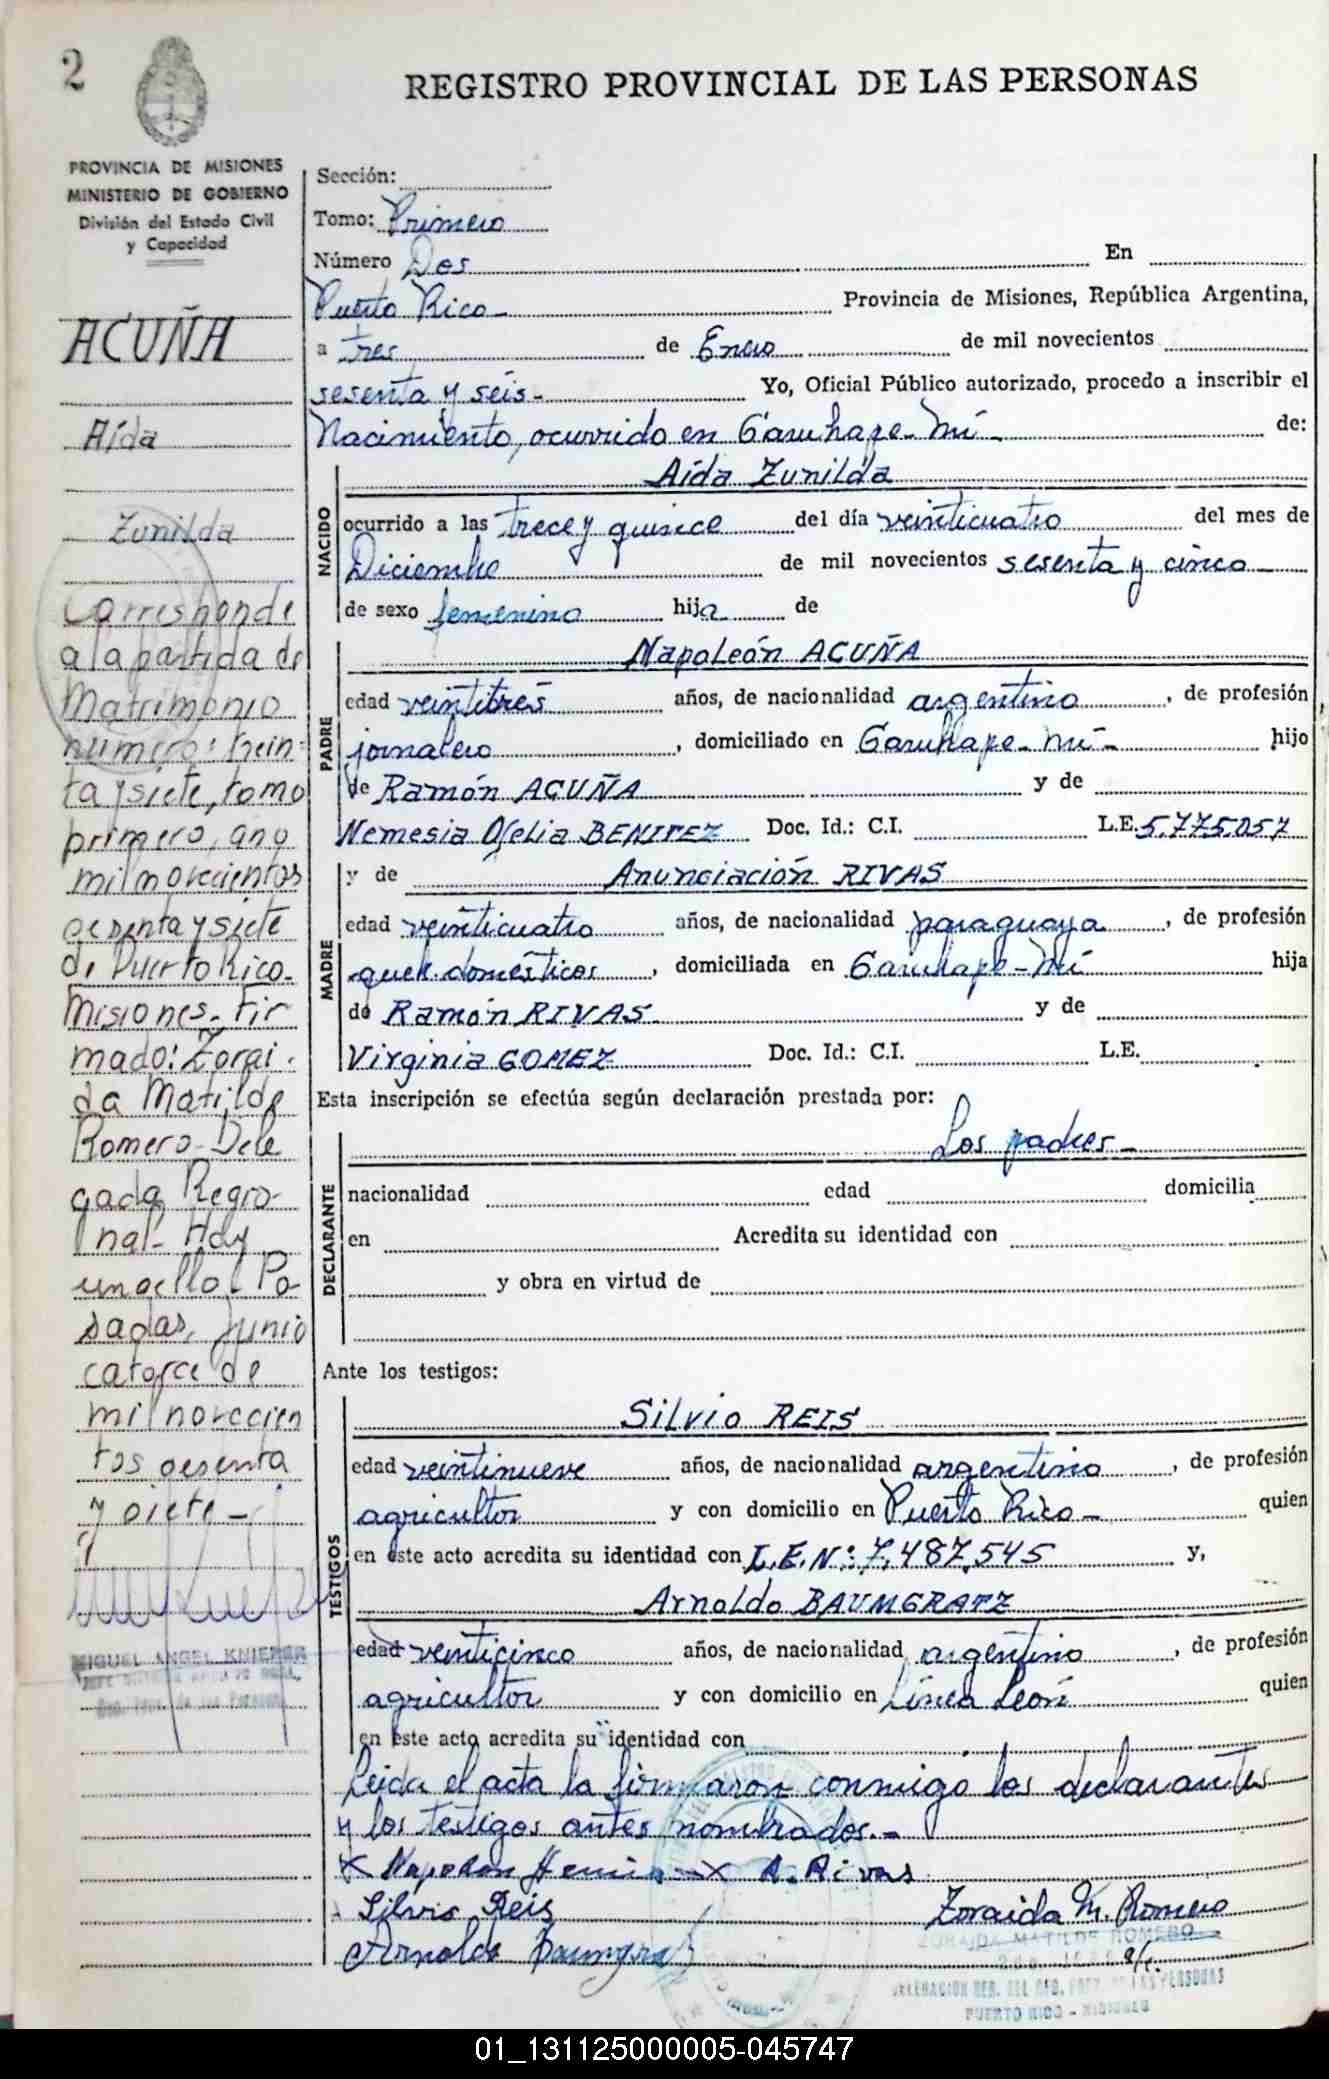 2
REGISTRO PROVINCIAL DE LAS PERSONAS
PROVINCIA DE MISIONES
MINISTERIO DE GOBIERNO
División del Estado Civil
y Capacidad
ACUÑA
Aída
Zunilda
Corresponde
a la partida de
Matrimonio
número: trein-
ta y siete, tomo
primero, año
mil novecientos
sesenta y siete
de Puerto Rico-
Misiones- Fir
mado: Zorai-
da Matilde
Romero- Dele
gada Regio-
nal- Hay
un sello. Po
sadas, Junio
catorce de
mil novecien
tos sesenta
y siete-
MIGUEL ANGEL KNIEPER
Sección:
Tomo: Primero
Número Dos En
Puerto Rico- Provincia de Misiones, República Argentina,
a tres de Enero de mil novecientos
sesenta y seis- Yo, Oficial Público autorizado, procedo a inscribir el
Nacimiento, ocurrido en Garuhape-Mí- de:
NACIDO
Aída Zunilda
ocurrido a las trece y quince del día veinticuatro del mes de
Diciembre de mil novecientos sesenta y cinco
de sexo femenino hija de
PADRE
Napoleón ACUÑA
edad veintitres años, de nacionalidad argentino, de profesión
jornalero, domiciliado en Garuhape-Mí- hijo
de Ramón ACUÑA y de
Nemesia Ofelia BENITEZ Doc. Id.: C.I. L.E. 5.775.057
MADRE
y de Anunciación RIVAS
edad veinticuatro años, de nacionalidad paraguaya, de profesión
queh. domésticos, domiciliada en Garuhape-Mí hija
de Ramón RIVAS y de
Virginia GOMEZ Doc. Id.: C.I. L.E.
Esta inscripción se efectúa según declaración prestada por:
DECLARANTE
Los padres-
nacionalidad edad domicilia
en Acredita su identidad con
y obra en virtud de
Ante los testigos:
TESTIGOS
Silvio REIS
edad veintinueve años, de nacionalidad argentino, de profesión
agricultor y con domicilio en Puerto Rico- quien
en este acto acredita su identidad con L.E.Nº: 7.487.545 y,
Arnoldo BAUMGRATZ
edad veinticinco años, de nacionalidad argentino, de profesión
agricultor y con domicilio en Línea León quien
en este acto acredita su identidad con
Leida el acta la firmaron conmigo los declarantes
y los testigos antes nombrados.-
X Napoleon X A. Rivas
Silvio Reis Zoraida M. Romero
Arnoldo Baumgratz
ZORAIDA MATILDE ROMERO
PUERTO RICO - MISIONES
01_131125000005-045747